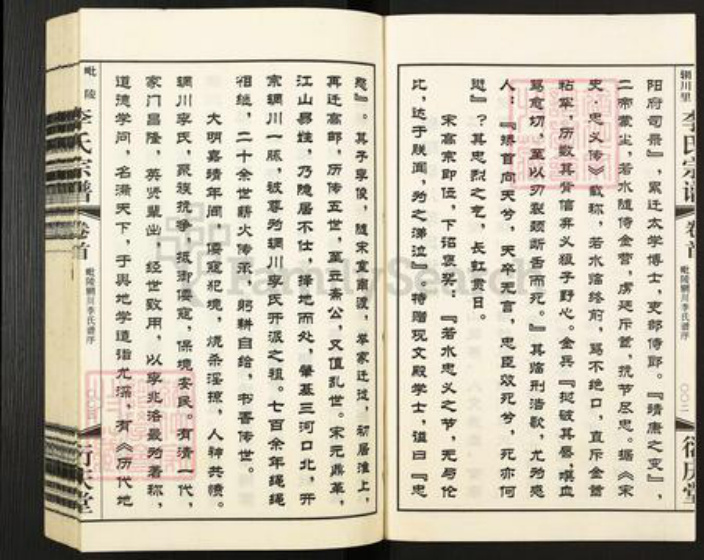 辋川里 李氏宗谱 卷首 毗陵辋川李氏谱序 〇〇二 衍庆堂
阳府司录』，累迁太学博士，吏部侍郎。『靖康之变』，
二帝蒙尘，若水随侍金营，虏廷斥酋，抗节尽忠。据《宋
史·忠义传》载称，若水临终前，骂不绝口，直斥金酋
粘罕，历数其背信弃义狼子野心。金兵『挝破其唇，噀血
骂愈切，至以刃裂颈断舌而死。』其临刑浩歌，尤为感
人：『矫首问天兮，天卒无言，忠臣效死兮，死亦何
愆』？其忠烈之气，长虹贯日。
宋高宗即位，下诏褒奖：『若水忠义之节，无与伦
比，达于朕闻，为之涕泣』特赠观文殿学士，谥曰『忠
愍』。其子李俊，随宋室南渡，举家迁徙，初居淮上，
再迁高邮，历传五世，至元斋公，又值乱世。宋元鼎革，
江山易姓，乃隐居不仕，择地而处，肇基三河口北，开
宗辋川一脉，被尊为辋川李氏开派之祖。七百余年绳绳
相继，二十余世薪火传承，躬耕自给，书香传世。
大明嘉靖年间，倭寇犯境，烧杀淫掠，人神共愤。
辋川李氏，聚族抗争，抵御倭寇，保境安民。有清一代，
家门昌隆，英贤辈出，经世致用，以李兆洛最为著称，
道德学问，名满天下，于舆地学造诣尤深，有《历代地
毗陵 李氏宗谱 卷首 毗陵辋川李氏谱序 衍庆堂
FamilySearch